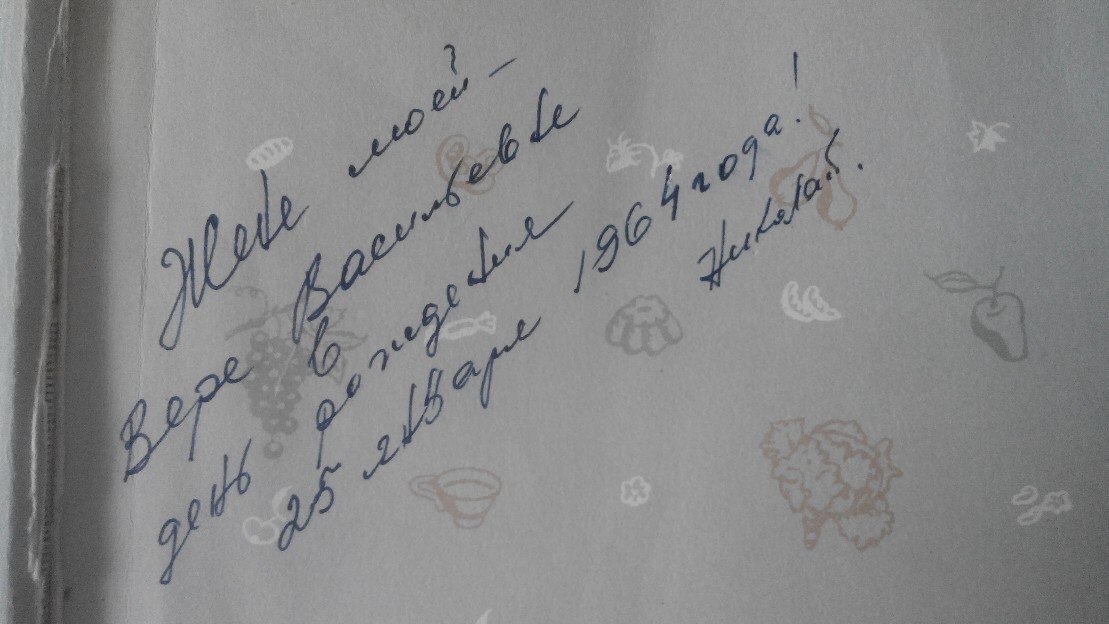 Жене моей –
Вере Васильевне
в
день рождения
25 января 1964 года!
Николай.